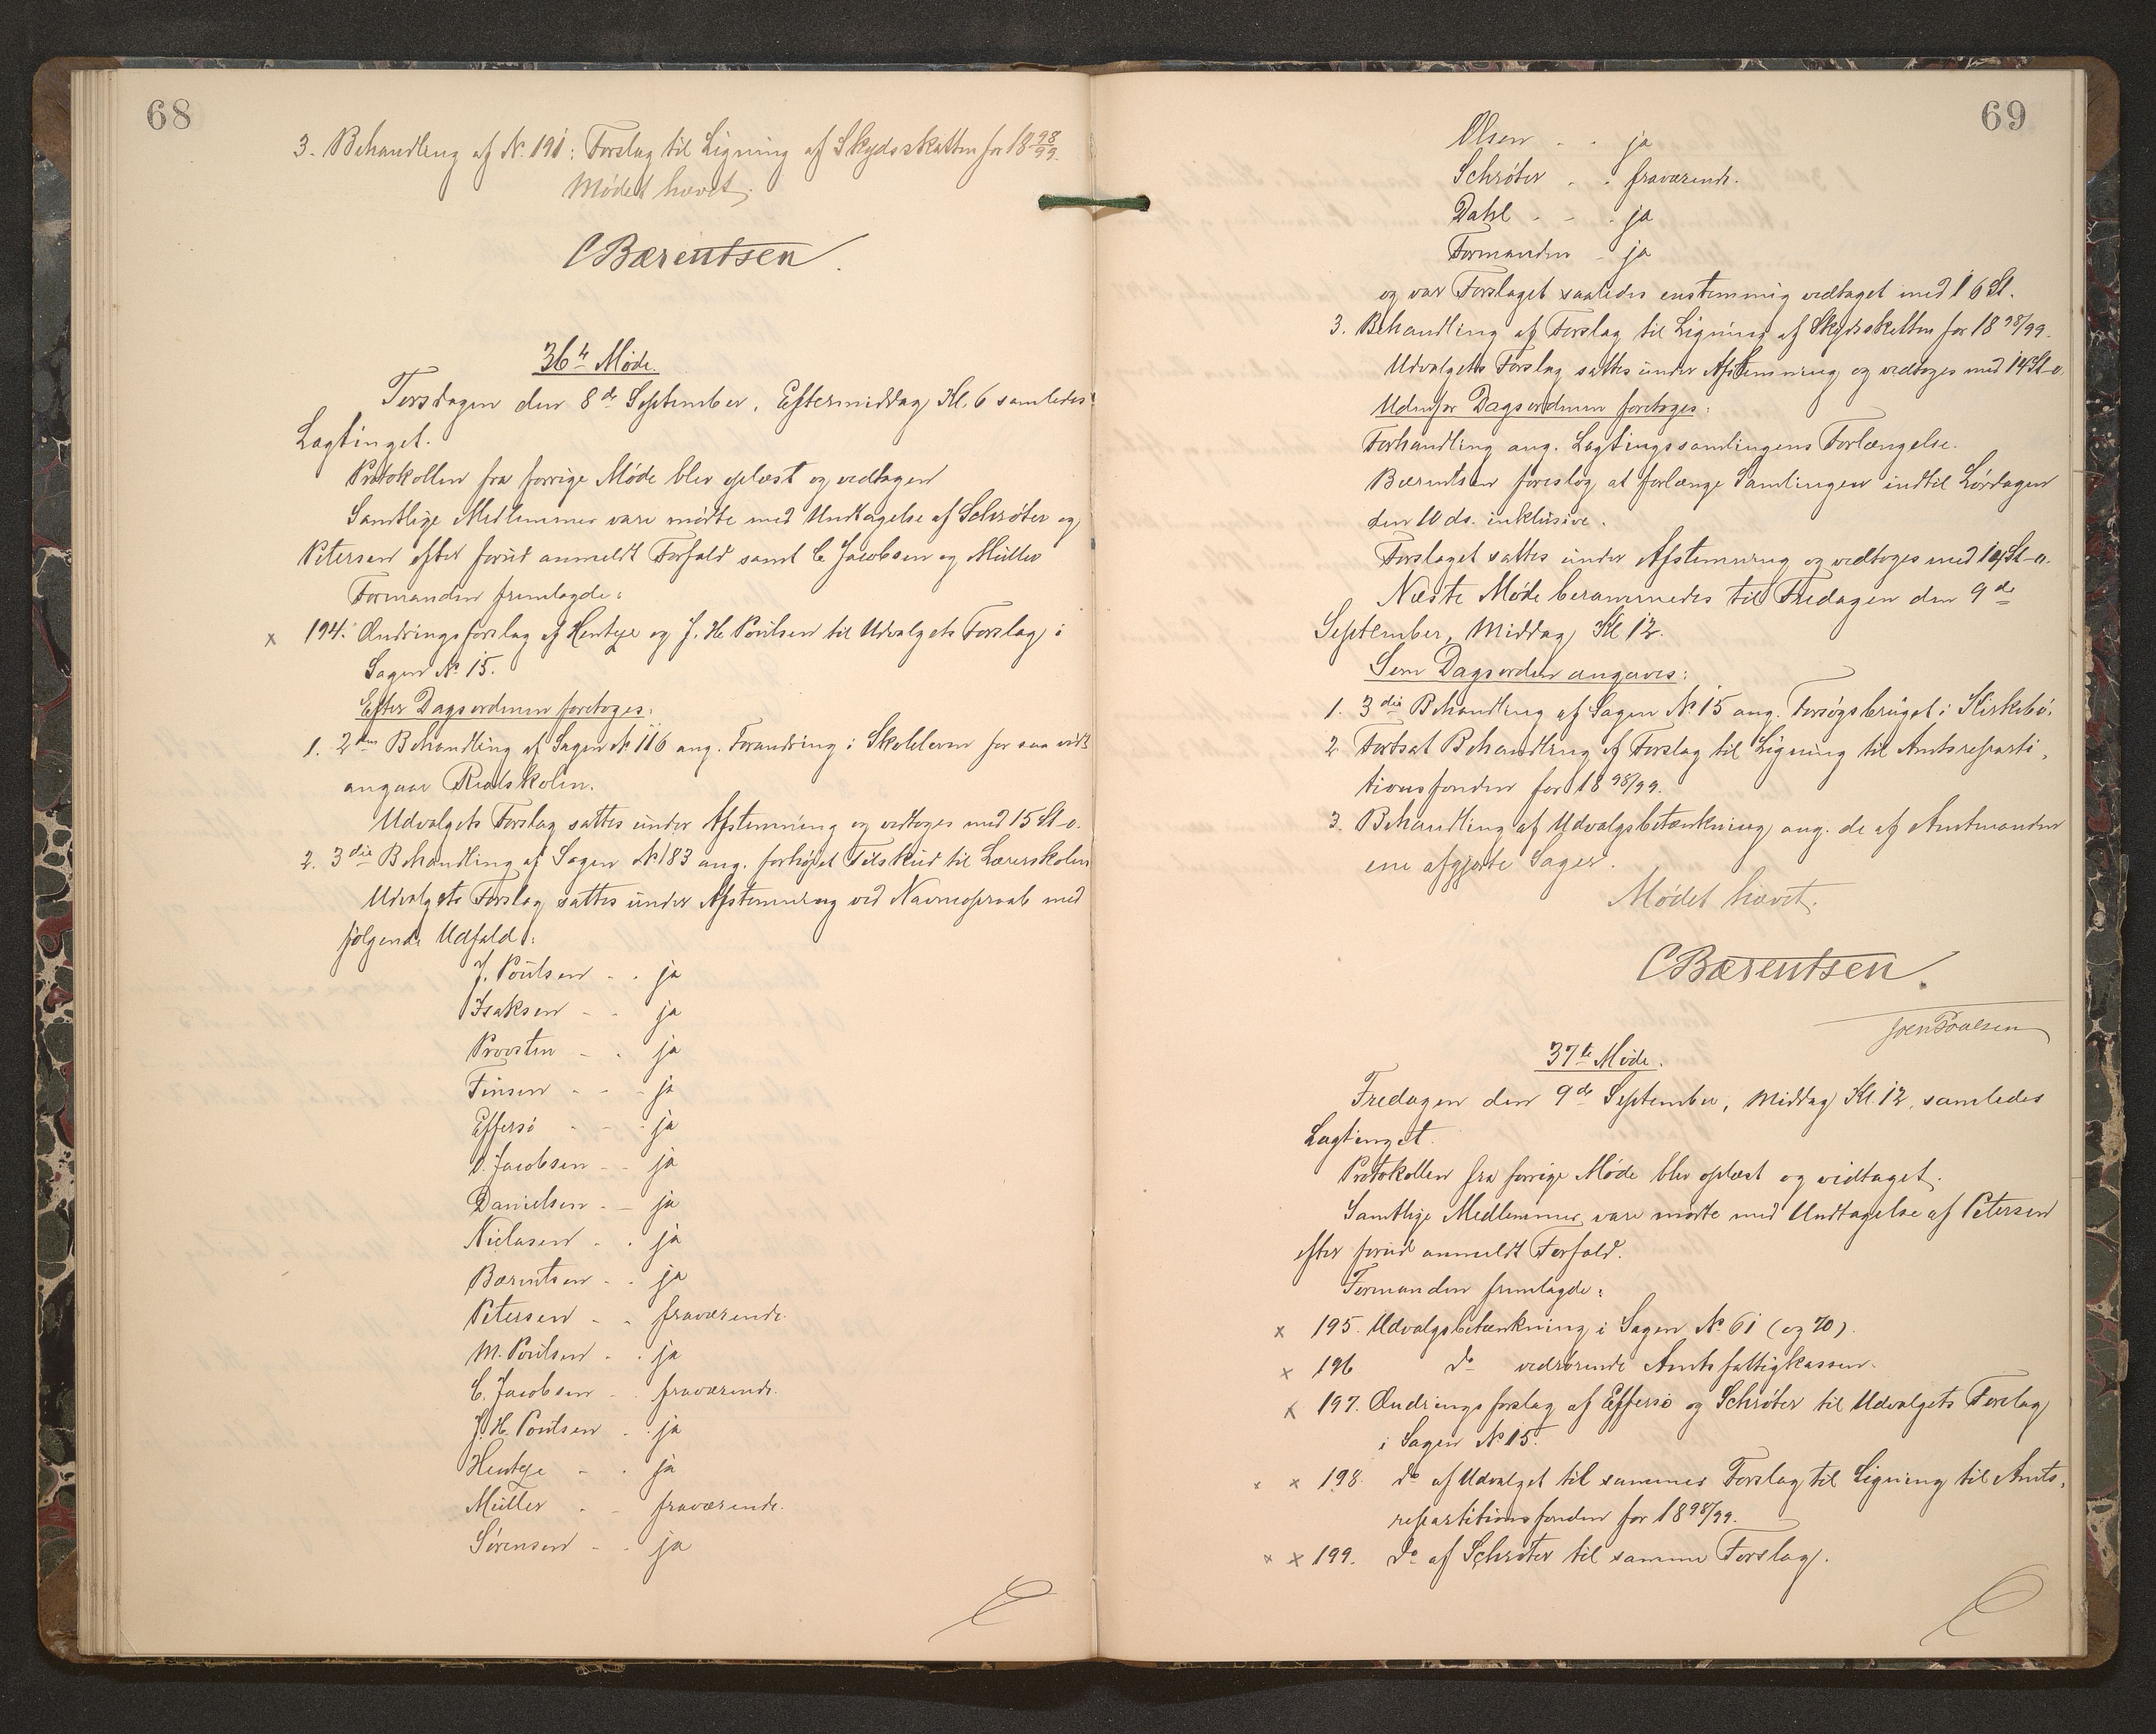 68
3. Behandling af N. 191: Forslag til Ligning af Skydsskatten for 18 98/99.
Mødet hævet.
C Bærentsen.
36te Møde.
Torsdagen den 8de September, Eftermiddag Kl. 6 samledes
Lagtinget.
Protokollen fra forrige Møde blev oplæst og vedtagen
Samtlige Medlemmer vare mødte med Undtagelse af Schrøter og
Petersen efter forud anmeldt Forfald samt C Jacobsen og Müller
Formanden fremlagde:
x 194. Ændringsforslag af Hentze og J. H. Poulsen til Udvalgets Forslag i
Sagen No 15.
Efter Dagsordenen foretoges:
1. 2den Behandling af Sagen No 116 ang. Forandring i Skoleloven for saa vidt
angaar Realskolen.
Udvalgets Forslag sattes under Afstemning og vedtoges med 15 St-o.
2. 3die Behandling af Sagen No 183 ang. forhøjet Tilskud til Lærerskolen
Udvalgets Forslag sattes under Afstemning ved Navneopraab med
følgende Udfald:
J. Poulsen - . ja
Isaksen - - ja
Provsten - . ja
Finsen - - - ja
Effersø - - - ja
O. Jacobsen - - ja
Danielsen - - ja
Nielasen . . ja
Bærentsen - . ja
Petersen - - fraværende.
M. Poulsen . . ja
C. Jacobsen - . fraværende.
J. H. Poulsen . . ja
Hentze - . ja
Müller . - fraværende.
Sørensen - . ja
69
Olsen - . ja
Schrøter . . fraværende.
Dahl - - . ja
Formanden - ja
og var Forslaget saaledes enstemmig vedtaget med 16 St.
3. Behandling af Forslag til Ligning af Skydsskatten for 18 98/99.
Udvalgets Forslag sattes under Afstemning og vedtoges med 14 St-o.
Udenfor Dagsordenen foretoges:
Forhandling ang. Lagtingssamlingens Forlængelse.
Bærentsen foreslog at forlænge Samlingen indtil Lørdagen
den 10 ds. inklusive.
Forslaget sattes under Afstemning og vedtoges med St-o.
Næste Møde berammedes til Fredagen den 9de
September, Middag Kl 12.
Som Dagsorden angaves:
1. 3die Behandling af Sagen No 15 ang. Forsøgsbruget i Kirkebø.
2 Fortsat Behandling af Forslag til Ligning til Amtsreparti-
tionsfonden for 18 98/99.
3. Behandling af Udvalgsbetænkning ang. de af Amtmanden
ene afgjorte Sager.
Mødet hævet.
C Bærentsen.
Joen Poulsen
37te Møde.
Fredagen den 9de September, Middag Kl. 12, samledes
Lagtinget.
Protokollen fra forrige Møde blev oplæst og vedtaget.
Samtlige Medlemmer vare mødte med Undtagelse af Petersen
efter forud anmeldt Forfald.
Formanden fremlagde:
x 195. Udvalgsbetænkning i Sagen No 61 (og 70).
x 196 do vedrørende Amtsfattigkassen.
x 197. Ændringsforslag af Effersø og Schrøter til Udvalgets Forslag
i Sagen No 15.
x x 198. do af Udvalget til sammes Forslag til Ligning til Amts-
repartitionsfonden for 18 98/99.
x x 199. do af Schrøter til samme Forslag.